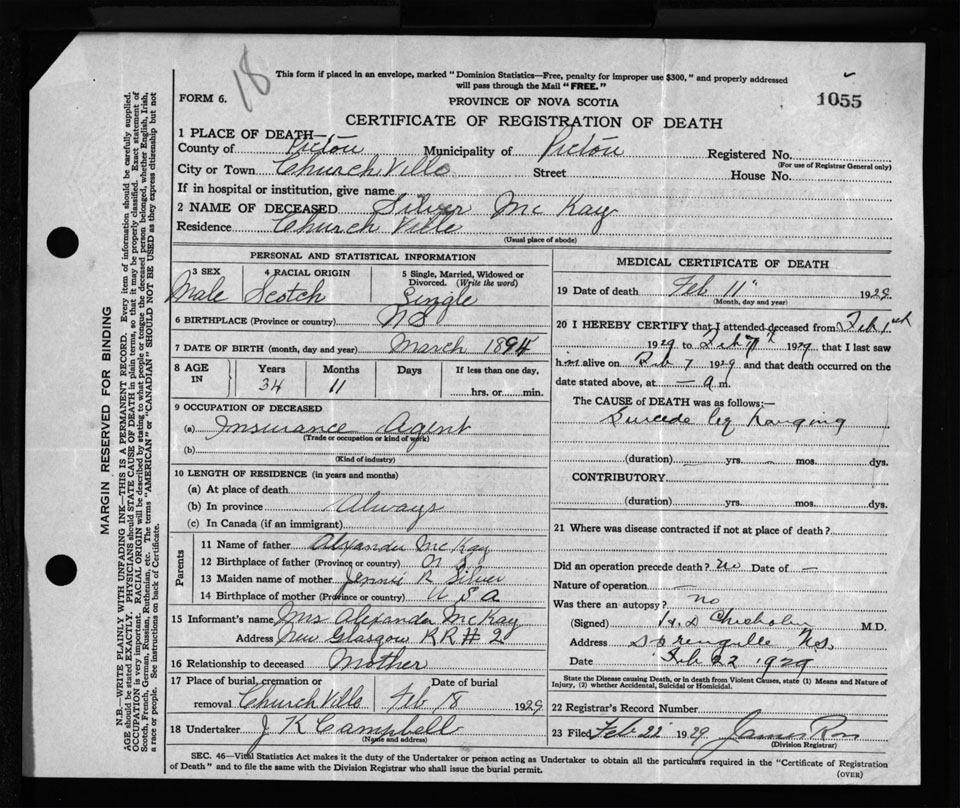 18
This form if placed in an envelope, marked "Dominion Statistics—Free, penalty for improper use $300," and properly addressed
will pass through the Mail "FREE."
FORM 6.
PROVINCE OF NOVA SCOTIA
1055
CERTIFICATE OF REGISTRATION OF DEATH
1 PLACE OF DEATH—
County of Pictou Municipality of Pictou Registered No.
(For use of Registrar General only)
City or Town Church Ville Street House No.
If in hospital or institution, give name
2 NAME OF DECEASED Silver McKay
Residence Church Ville
(Usual place of abode)
PERSONAL AND STATISTICAL INFORMATION
3 SEX 4 RACIAL ORIGIN 5 Single, Married, Widowed or
Divorced. (Write the word)
Male Scotch Single
6 BIRTHPLACE (Province or country) N S
7 DATE OF BIRTH (month, day and year) March 1894
8 AGE IN Years Months Days If less than one day,
34 11 hrs. or min.
9 OCCUPATION OF DECEASED
(a) Insurance Agent
(Trade or occupation or kind of work)
(b)
(Kind of industry)
10 LENGTH OF RESIDENCE (in years and months)
(a) At place of death
(b) In province Always
(c) In Canada (if an immigrant)
Parents
11 Name of father Alexander McKay
12 Birthplace of father (Province or country) N S
13 Maiden name of mother Jennie R Silver
14 Birthplace of mother (Province or country) U S A
15 Informant's name Mrs Alexander McKay
Address New Glasgow RR# 2
16 Relationship to deceased Mother
17 Place of burial, cremation or Date of burial
removal Church Ville Feb 18 1929
18 Undertaker J K Campbell
(Name and address)
MEDICAL CERTIFICATE OF DEATH
19 Date of death Feb 11" 1929
(Month, day and year)
20 I HEREBY CERTIFY that I attended deceased from Feb 1st
1929 to Feb 1929 that I last saw
him alive on Feb 7 1929 and that death occurred on the
date stated above, at — a m.
The CAUSE of DEATH was as follows:—
Suicede by Hanging
(duration) yrs. mos. dys.
CONTRIBUTORY
(duration) yrs. mos. dys.
21 Where was disease contracted if not at place of death?
Did an operation precede death? no Date of —
Nature of operation —
Was there an autopsy? no
(Signed) H. D Chisholm M.D.
Address Springville Ns.
Date Feb 22 1929
State the Disease causing Death, or in death from Violent Causes, state (1) Means and Nature of
Injury, (2) whether Accidental, Suicidal or Homicidal.
22 Registrar's Record Number
23 Filed Feb 22 1929 James Ross
(Division Registrar)
SEC. 46—Vital Statistics Act makes it the duty of the Undertaker or person acting as Undertaker to obtain all the particulars required in the "Certificate of Registration
of Death" and to file the same with the Division Registrar who shall issue the burial permit.
(OVER)
MARGIN RESERVED FOR BINDING
N.B.—WRITE PLAINLY WITH UNFADING INK—THIS IS A PERMANENT RECORD. Every item of information should be carefully supplied.
AGE should be stated EXACTLY. PHYSICIANS should STATE CAUSE OF DEATH in plain terms, so that it may be properly classified. Exact statement of
OCCUPATION is very important. RACIAL ORIGIN will be described by stating to what people or tongue the deceased person belonged, whether English, Irish,
Scotch, French, German, Russian, Ruthenian, etc. The terms "AMERICAN" or "CANADIAN" SHOULD NOT BE USED as they express citizenship but not
a race or people. See instructions on back of Certificate.